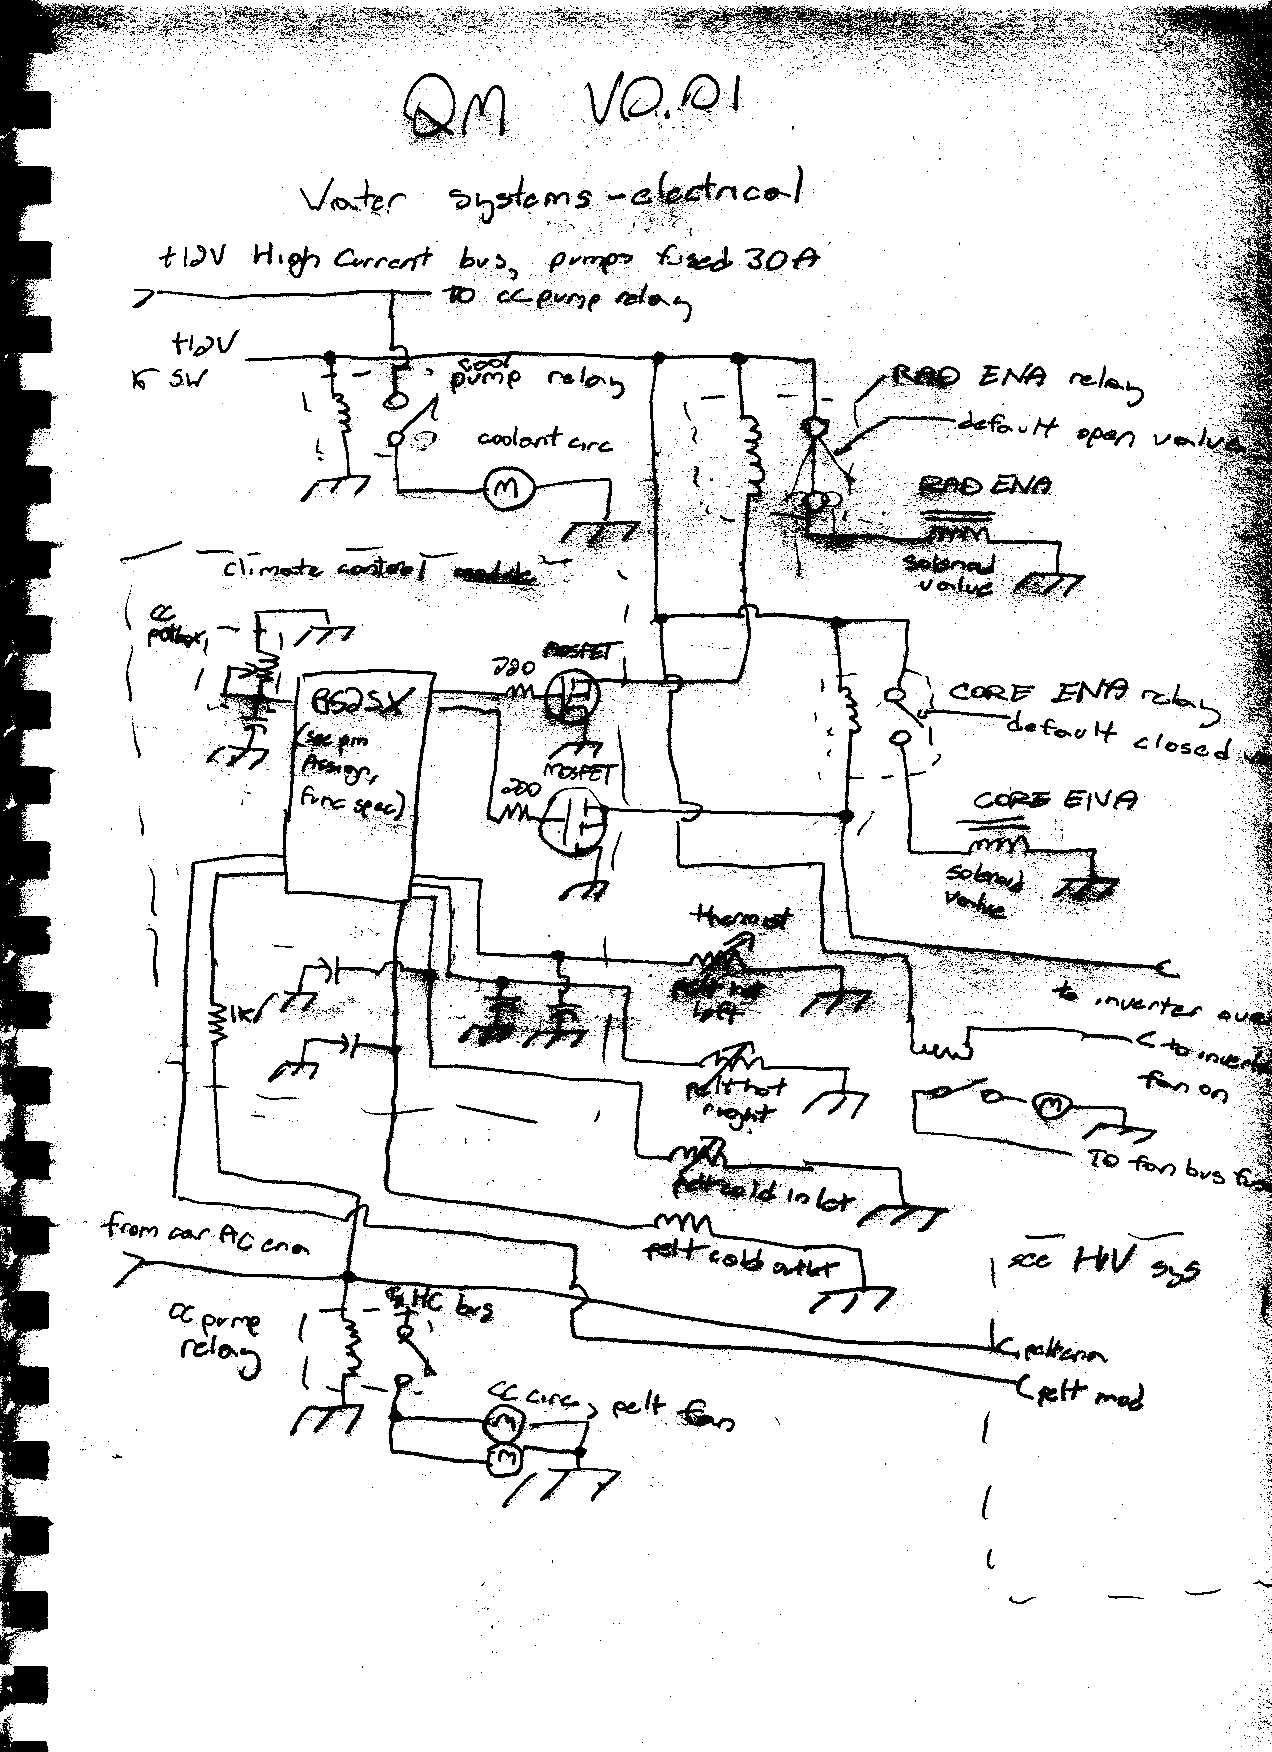 QM V0.01
Water systems - electrical
+12V High Current bus, pumps fused 30A
TO CC pump relay
+12V
SW
cool
pump relay
RAD ENA relay
default open valve
coolant circ
RAD ENA
solenoid
valve
climate control module
CC
potbox
220
MOSFET
BS2SX
(see pin
Assign,
func spec)
CORE ENA relay
default closed
MOSFET
200
CORE ENA
solenoid
valve
thermist
pelt hot
left
1K
to inverter
to inverter
fan on
pelt hot
right
TO fan bus
pelt cold inlet
from car AC ena
pelt cold outlet
see HV sys
CC pump
relay
HC bus
pelt ena
pelt mod
CC circ, pelt fan
M
M
M
M